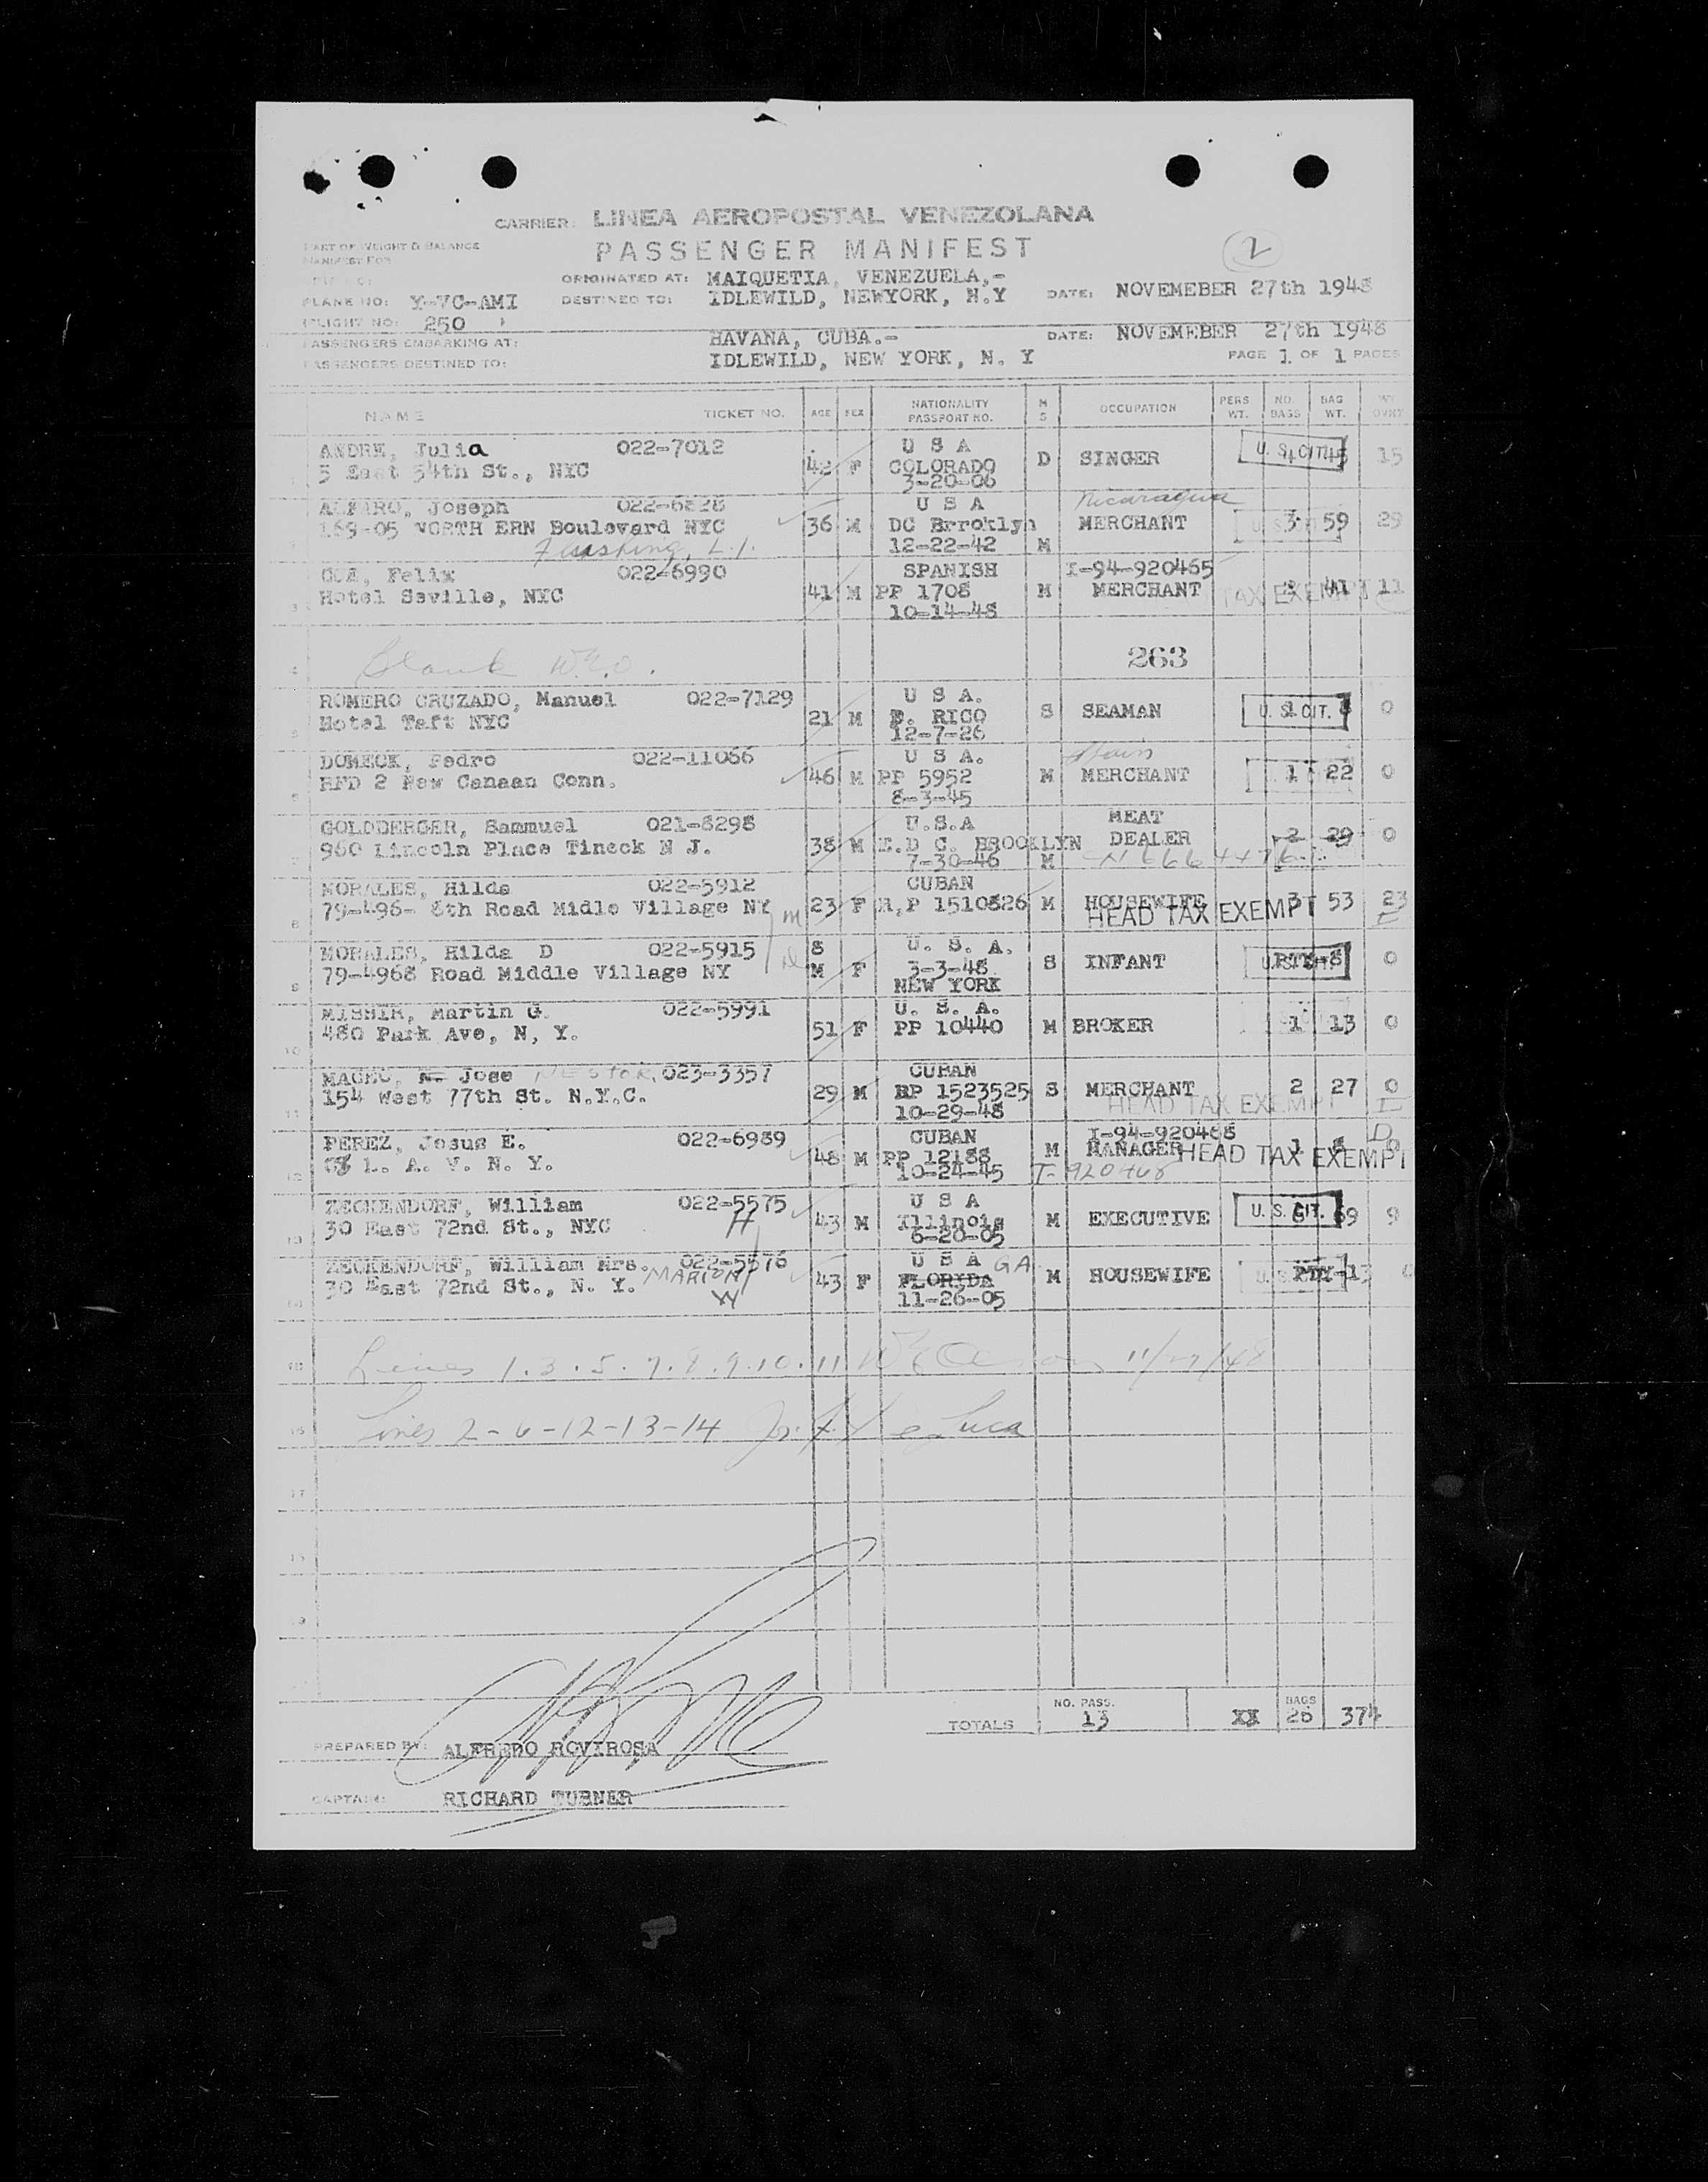 CARRIER: LINEA AEROPOSTAL VENEZOLANA
PART OF WEIGHT & BALANCE
MANIFEST FOR
PASSENGER MANIFEST
2
ORIGINATED AT: MAIQUETIA, VENEZUELA,-
PLANE NO: Y-VC-AMI DESTINED TO: IDLEWILD, NEWYORK, N.Y DATE: NOVEMEBER 27th 1948
FLIGHT NO: 250
PASSENGERS EMBARKING AT: HAVANA, CUBA.- DATE: NOVEMEBER 27th 1948
PASSENGERS DESTINED TO: IDLEWILD, NEW YORK, N. Y PAGE 1 OF 1 PAGES
NAME TICKET NO. AGE SEX NATIONALITY PASSPORT NO. M S OCCUPATION PERS WT. NO. BAGS BAG WT. WT OVRT
ANDRE, Julia 022-7012 U S A U. S. CIT.
5 East 54th St., NYC 42 F COLORADO D SINGER 4 45 15
3-20-06
ALFARO, Joseph 022-6828 U S A Nicaragua
169-05 NORTH ERN Boulevard NYC 36 M DC Brroklyn MERCHANT 3 59 29
Flushing, L.I. 12-22-42 M
Felix 022-6990 SPANISH I-94-920465
Hotel Seville, NYC 41 M PP 1708 M MERCHANT TAX EXEMPT 2 41 11
10-14-48
Blank 263
ROMERO CRUZADO, Manuel 022-7129 U S A.
Hotel Taft NYC 21 M P. RICO S SEAMAN U. S. CIT. 1 8 0
12-7-26
DOMECK, Pedro 022-11066 U S A. Spain
RFD 2 New Canaan Conn. 46 M PP 5952 M MERCHANT 1 22 0
8-3-45
GOLDBERGER, Sammuel 021-8298 U.S.A MEAT
960 Lincoln Place Tineck N J. 38 M E.D C. BROOKLYN DEALER 2 29 0
7-30-46 M
MORALES, Hilda 022-5912 CUBAN
79-496- 8th Road Midle Village NY M 23 F R,P 1510826 M HOUSEWIFE 3 53 23
HEAD TAX EXEMPT
MORALES, Hilda D 022-5915 8 U. S. A.
79-4968 Road Middle Village NY M F 3-3-48 S INFANT U. S. CIT. 0
NEW YORK
Martin G. 022-5991 U. S. A.
480 Park Ave, N, Y. 51 F PP 10440 M BROKER 1 13 0
Jose NESTOR, 023-3357 CUBAN
154 West 77th St. N.Y.C. 29 M RP 1523525 S MERCHANT 2 27 0
10-29-48 HEAD TAX EXEMPT
PEREZ, Josus E. 022-6989 CUBAN I-94-920468
L. A. V. N. Y. 48 M PP 12188 M MANAGER 1 8 0
10-24-45 T-920468 HEAD TAX EXEMPT
ZECKENDORF, William 022-5575 U S A
30 East 72nd St., NYC H 43 M Illinois M EXECUTIVE U. S. CIT. 69 9
6-20-05
ZECKENDORF, William Mrs. 022-5576 U S A GA.
30 East 72nd St., N. Y. MARION W 43 F FLORIDA M HOUSEWIFE
11-26-05
Lines 1.3.5.7.8.9.10.11 11/27/48
Lines 2-6-12-13-14
TOTALS NO. PASS. 13 XX BAGS 26 374
PREPARED BY: ALFREDO ROVIROSA
CAPTAIN: RICHARD TURNER